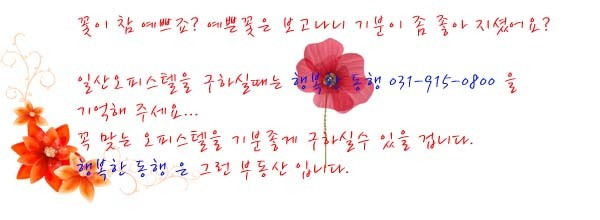 꽃이 참 예쁘죠? 예쁜꽃은 보고나니 기분이 좀 좋아 지셨어요?
일산오피스텔을 구하실때는 행복한 동행 031-915-0800 을
기억해 주세요...
꼭 맞는 오피스텔을 기분좋게 구하실수 있을 겁니다.
행복한 동행 은 그런 부동산 입니다.